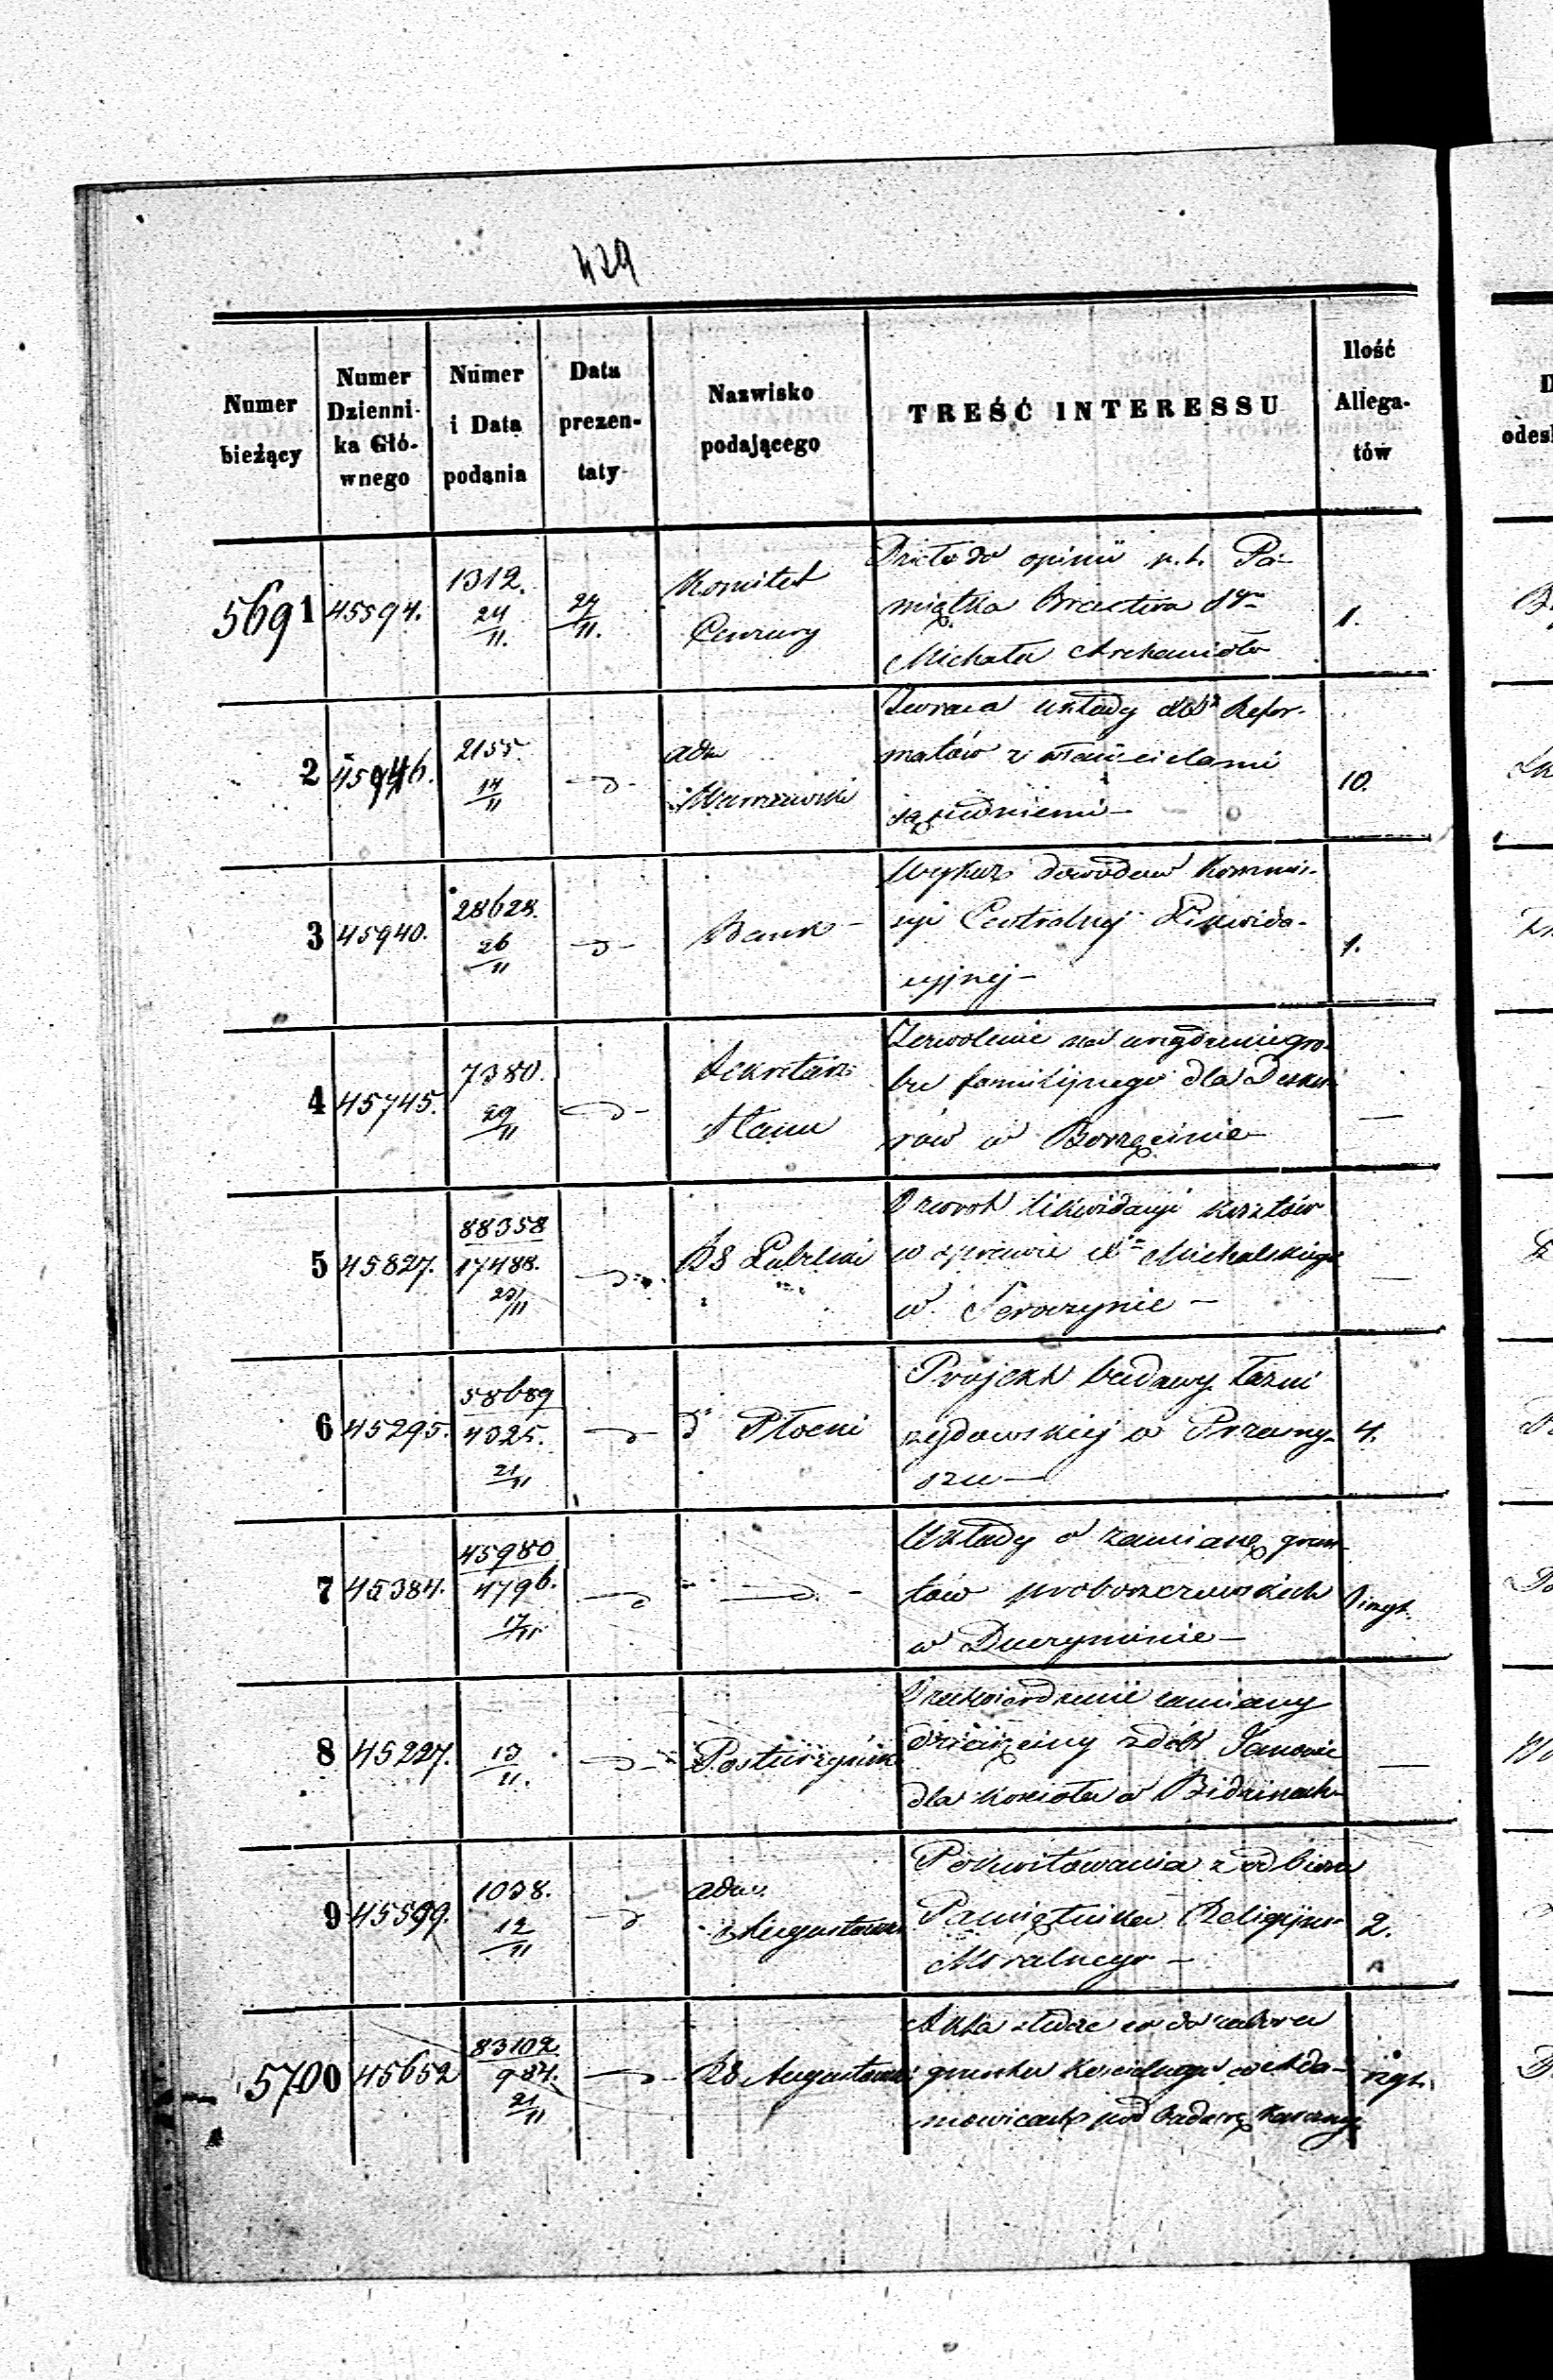 429
Numer bieżący
Numer Dzienni-ka Głó-wnego
Numer i Data podania
Data prezen-taty
Nazwisko podającego
TREŚĆ INTERESSU
Ilość Allega-tów
5691 45594. 1312. 24/11. 24/11. Komitet Cenzury
Dzieło do opinii p. t. Pa-
miątka Bractwa Sgo
Michała Archanioła
1.
2 45946. 2155. 14/11 -d- adm Warszawski
Zwraca układy XX Refor-
matów z właścicielami
sąsiedniemi -
10.
3 45940. 28628. 26/11 -d- Bank -
Wykaz dowodów Kommis-
syi Centralnej Likwida-
cyjnej -
1.
4 45745. 7380. 29/11 -d- Sekretarz Stanu
Zezwolenie na urządzenie gro-
bu familijnego dla
w Borzęcinie
—
5 45827. 88358/17488. 23/11 -d- RG Lubelski
Zwrot likwidacyi kosztów
w sprawie Xa Michalskiego
w Seroczynie -
—
6 45295. 58689/4325. 21/11 -d- do Płocki
Projekt budowy łaźni
żydowskiej w Przasny-
szu —
4.
7 45384. 45980/4796. 17/11 -d- -d- -
Układy o zamianę grun-
tów proboszczowskich
w Duczyminie -
8 45227. 13/11. -d-
zamiany
dziesięciny z dóbr Janowic
dla kościoła w Bidzinach
—
9 45599. 1038. 12/11 -d adm. Augustowski
Pokwitowania z odbioru
Pamiętnika Religijno
Moralnego -
2.
5700 45652 83102/984. 21/11 -d- RG Augustowski
Akta co do zaboru
gruntu kościelnego w Ada-
mowicach pod budowę karczmy